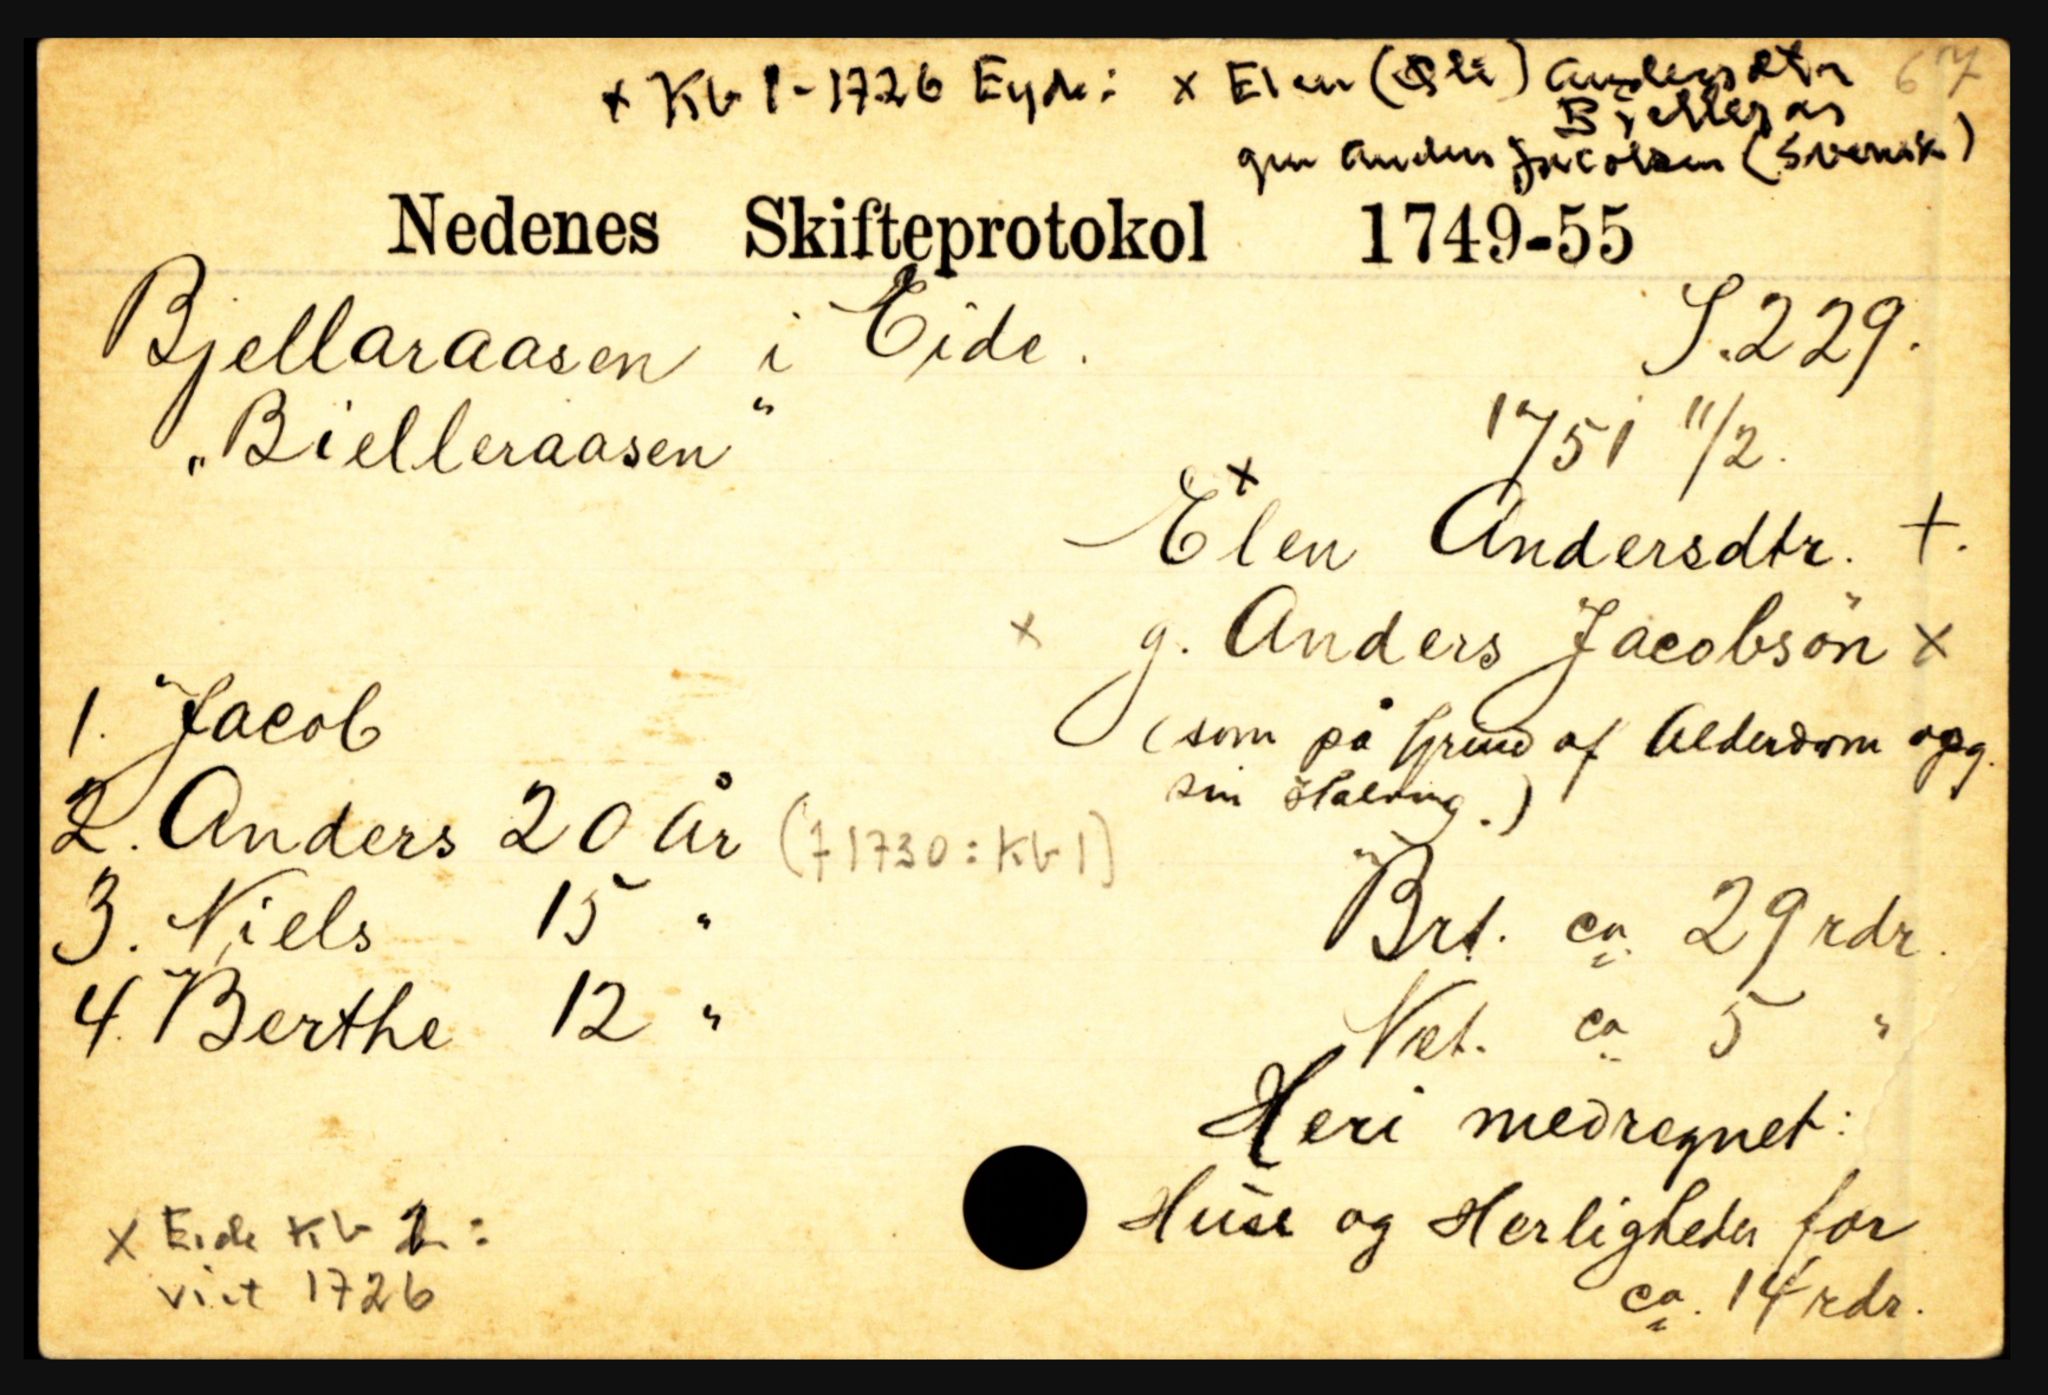 x Kb 1-1726 Eyde: x Elen (Eli) Andersdtr 67
Bjelleraas
gm Anders Jacobsen (Svensk)
Nedenes Skifteprotokol 1749-55
Bjellaraasen i Eide. S. 229.
"Bielleraasen" 1751 11/2.
x
Elen Andersdtr. +.
x g. Anders Jacobsön x
1. Jacob (som på Grund af Alderdom opg.
sin )
2. Anders 20 år (f 1730: Kb 1)
3. Niels 15 " Brt. ca. 29 rdr.
4. Berthe 12 " Net. ca 5 "
Heri medregnet:
Huse og Herligheder for
ca. 14 rdr.
x Eide Kb 1:
viet 1726